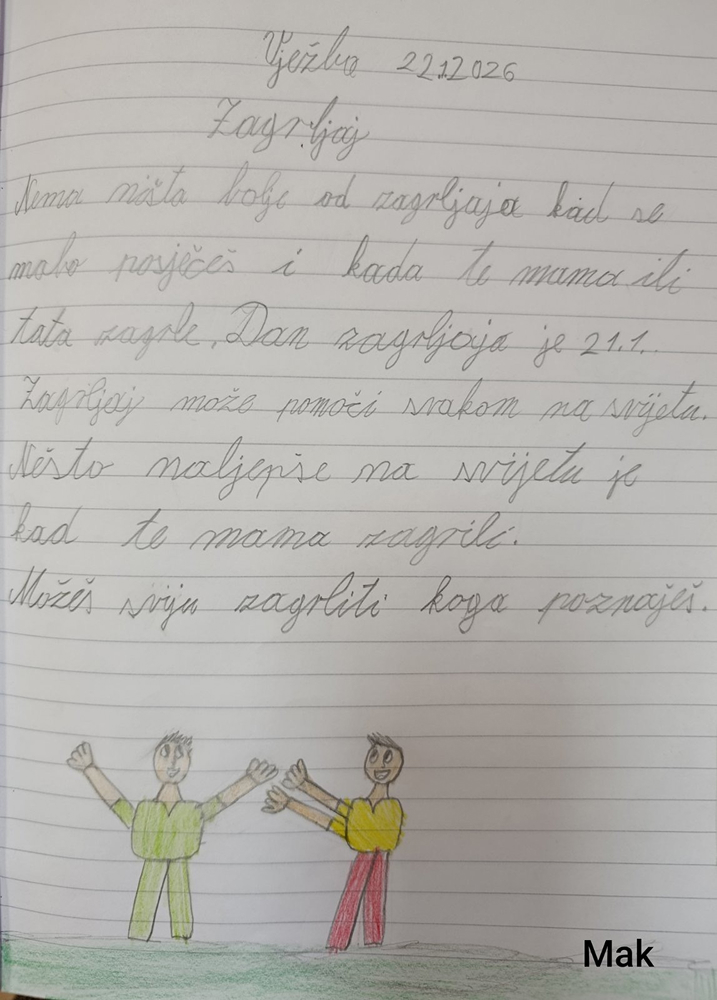 Vježba 22.1.2026
Zagrljaj
Nema ništa bolje od zagrljaja kad se
malo posječeš i kada te mama ili
tata zagrle. Dan zagrljaja je 21.1..
Zagrljaj može pomoći svakom na svijetu.
Nešto naljepše na svijetu je
kad te mama zagrili.
Možeš sviju zagrliti koga poznaješ.
Mak